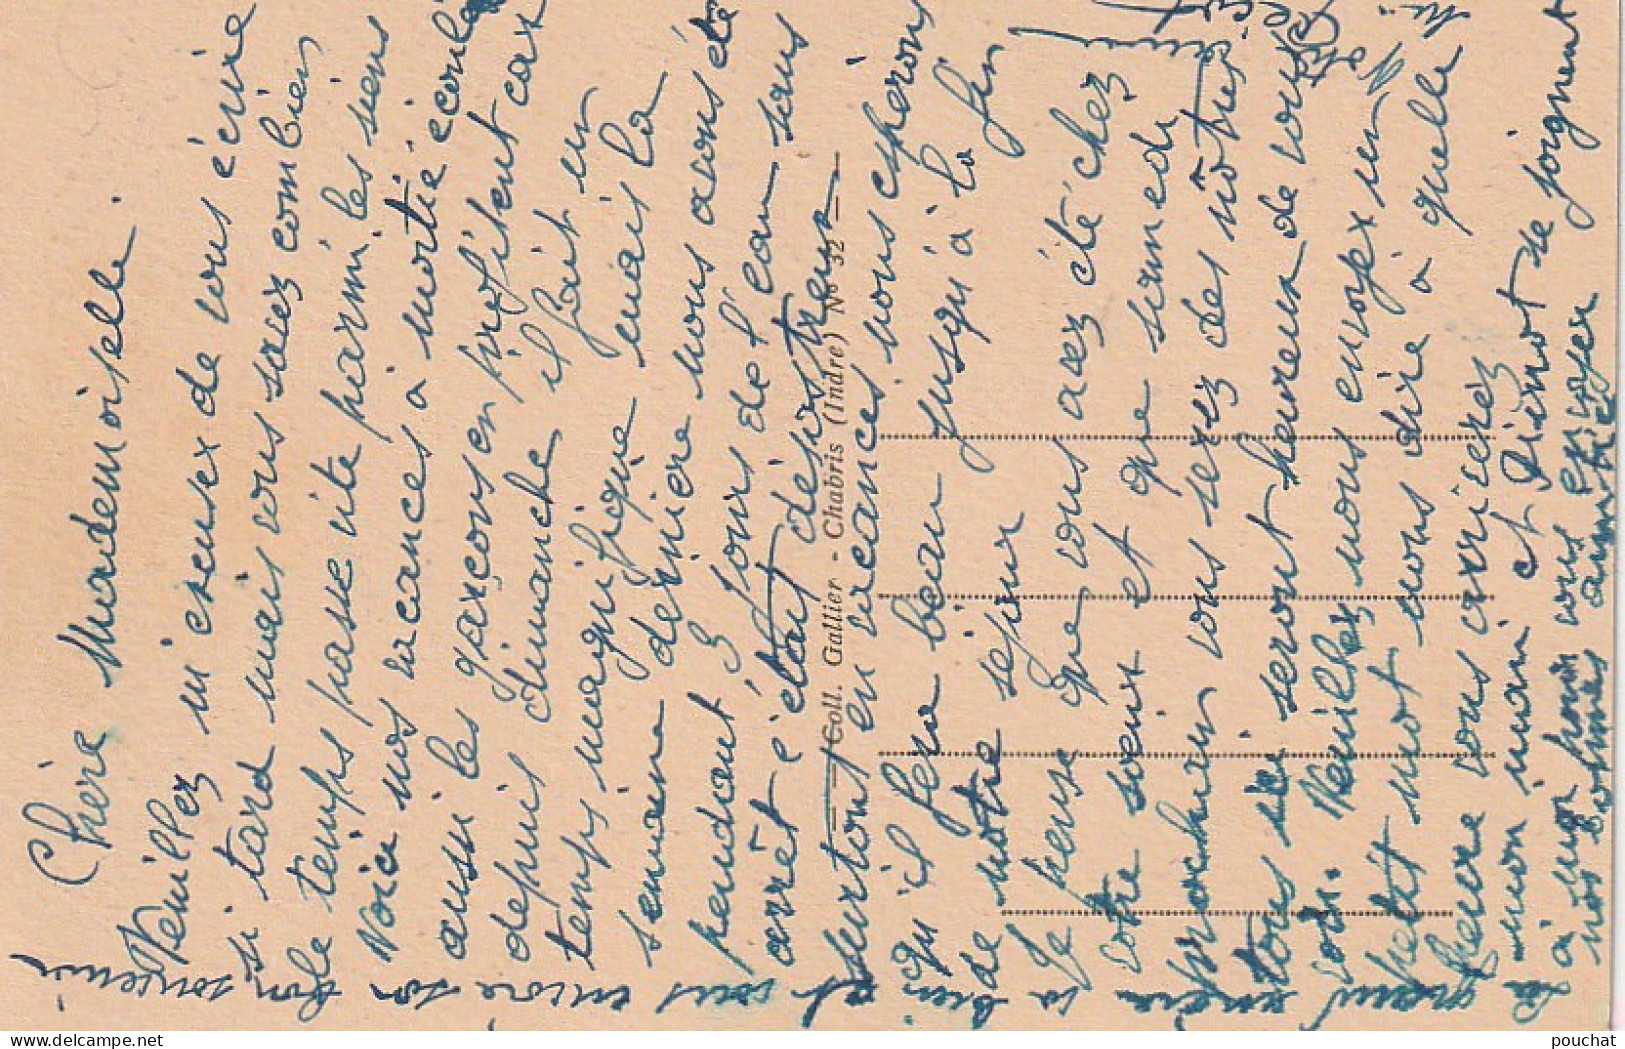 Chère Mademoiselle.
Veuillez m'excusez de vous écrire
si tard mais vous savez combien
le temps passe vite parmi les siens
Voici nos vacances à moitié écoulé
aussi les garçons en profitent car
depuis dimanche il fait un
temps magnifique mais la
semaine dernière nous avons eté
pendant 3 jours de l'eau sans
arrêt c'était désastreux
surtout en vacances nous esperons
qu'il fera beau jusqu'à la fin
de notre séjour
Je pense que vous avez été chez
votre et que samedi
prochain vous serez des nôtres
tous ici seront heureux de vous
voir. Veuillez nous envoyez un
petit mot nous dire à quelle
heure vous arriverez
mon mari et Pierrot se joignent
à moi pour vous envoyer
nos bonnes amitiés
Coll. Gallier - Chabris (Indre) N° 32
bon souvenir
encore
vous
pouchat
www.delcampe.net